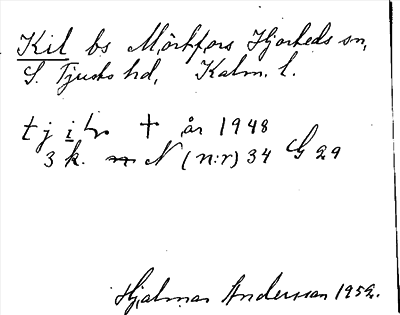 Kil bs Mörtfors Hjorteds sn,
S. Tjusts hd, Kalm. l.
t j i l + år 1948
3 k. m N (n:r) 34 G 29
Hjalmar Andersson 1952.